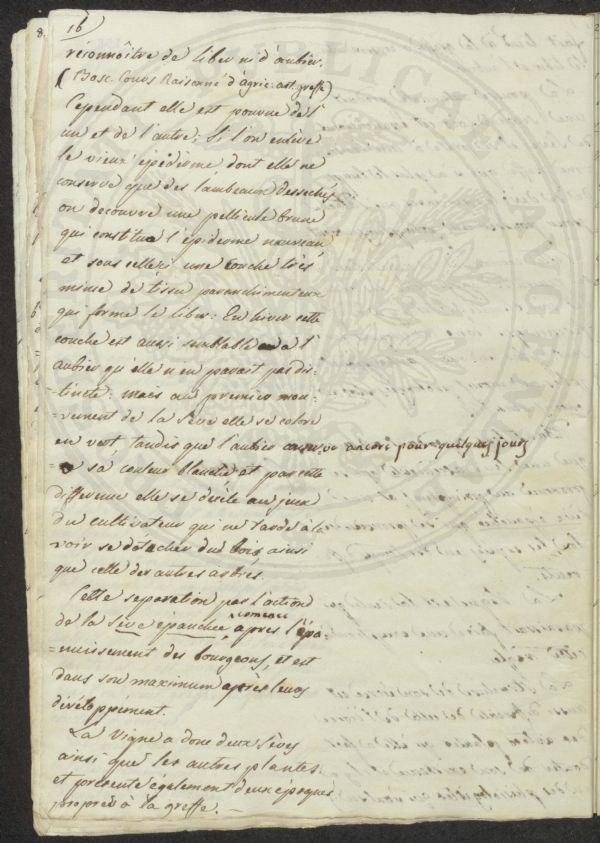 16
réconnoître de liber ni d'aubier.
(Bosc. Cours Raisonné d'agric: art. greffe)
Cependant elle est pourvue de l'
un et de l'autre; Si l'on enlève
le vieux épiderme dont elle ne
conserve que des lambeaux dessechés
on decouvre une pellicule brune
qui constitue l'épiderme nouveau
et sous celleci une couche très
mince de tissu parenchimenteux
qui forme le liber: En hiver cette
couche est aussi semblable a l'
aubier qu'elle n'en paroit pas dis-
-tincte: mais au premier mou-
-vement de la Sève elle se colore
en vert tandis que l'aubier conserve ancore pour quelques jours
sa couleur blanche et par cette
difference elle se décèle au yeux
du cultivateur qui ne tarde à la
voir se détacher du bois ainsi
que celle des autres arbres.
Cette separation par l'action
de la Sève épanchée, comence après l'épa
-nuissement des bourgeons, et est
dans son maximum après leurs
dévéloppément.
La Vigne a donc deux Sèves
ainsi que les autres plantes.
et présente également deux époques
propres à la greffe. —